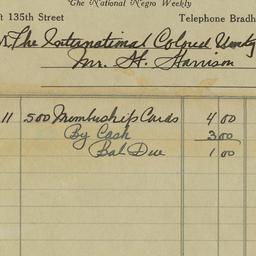 The National Negro Weekly
t 135th Street Telephone Bradh
The International Colored Unity
Mr. H. Harrison
11 500 Membership Cards 4 00
By Cash 3 00
Bal Due 1 00